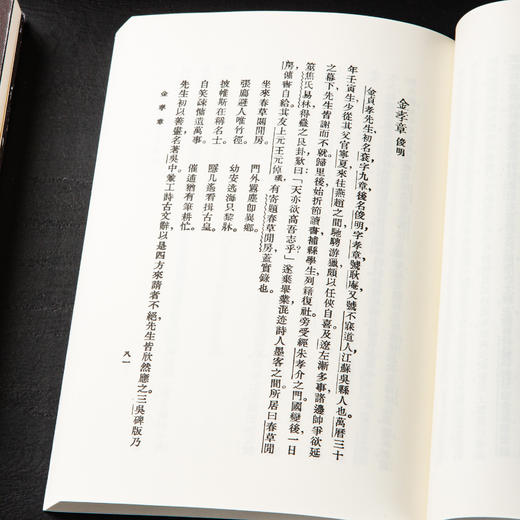 金孝章 俊明
金貞孝先生初名袞字九章後名俊明字孝章號耿庵又號不寐道人江蘇吳縣人也萬曆三十
年壬寅生少從其父官寧夏來往燕趙之間馳騁游獵頗以任俠自喜及遼左漸多事諸邊帥爭欲延
之幕下先生皆謝而不就歸里後始折節讀書補縣學生列籍復社旁受經朱孝介之門國變後一日
筮焦氏易林得蠱之艮卦歎曰「天亦欲高吾志乎?」遂棄舉業混迹詩人墨客之間所居曰春草閒
房傭書自給其友上元王元倬有寄題春草閒房蓋實錄也
坐來春草闢閒房。 門外囂塵卽異鄉。
張廌避人唯竹徑。 幼安逃海只藜牀。
披帷斯在稱名士。 隱几遙看揖古皇。
自笑疎慵遺萬事。 催逋猶有筆耕忙。
先生初以善書名著吳中兼工詩古文辭以是四方來請者不絕先生皆欣然應之三吳碑版乃
金孝章
八一